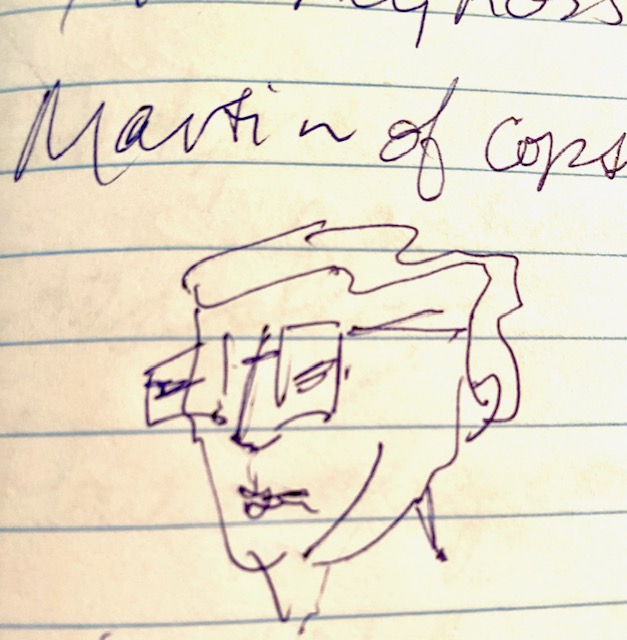 Martin of Cops